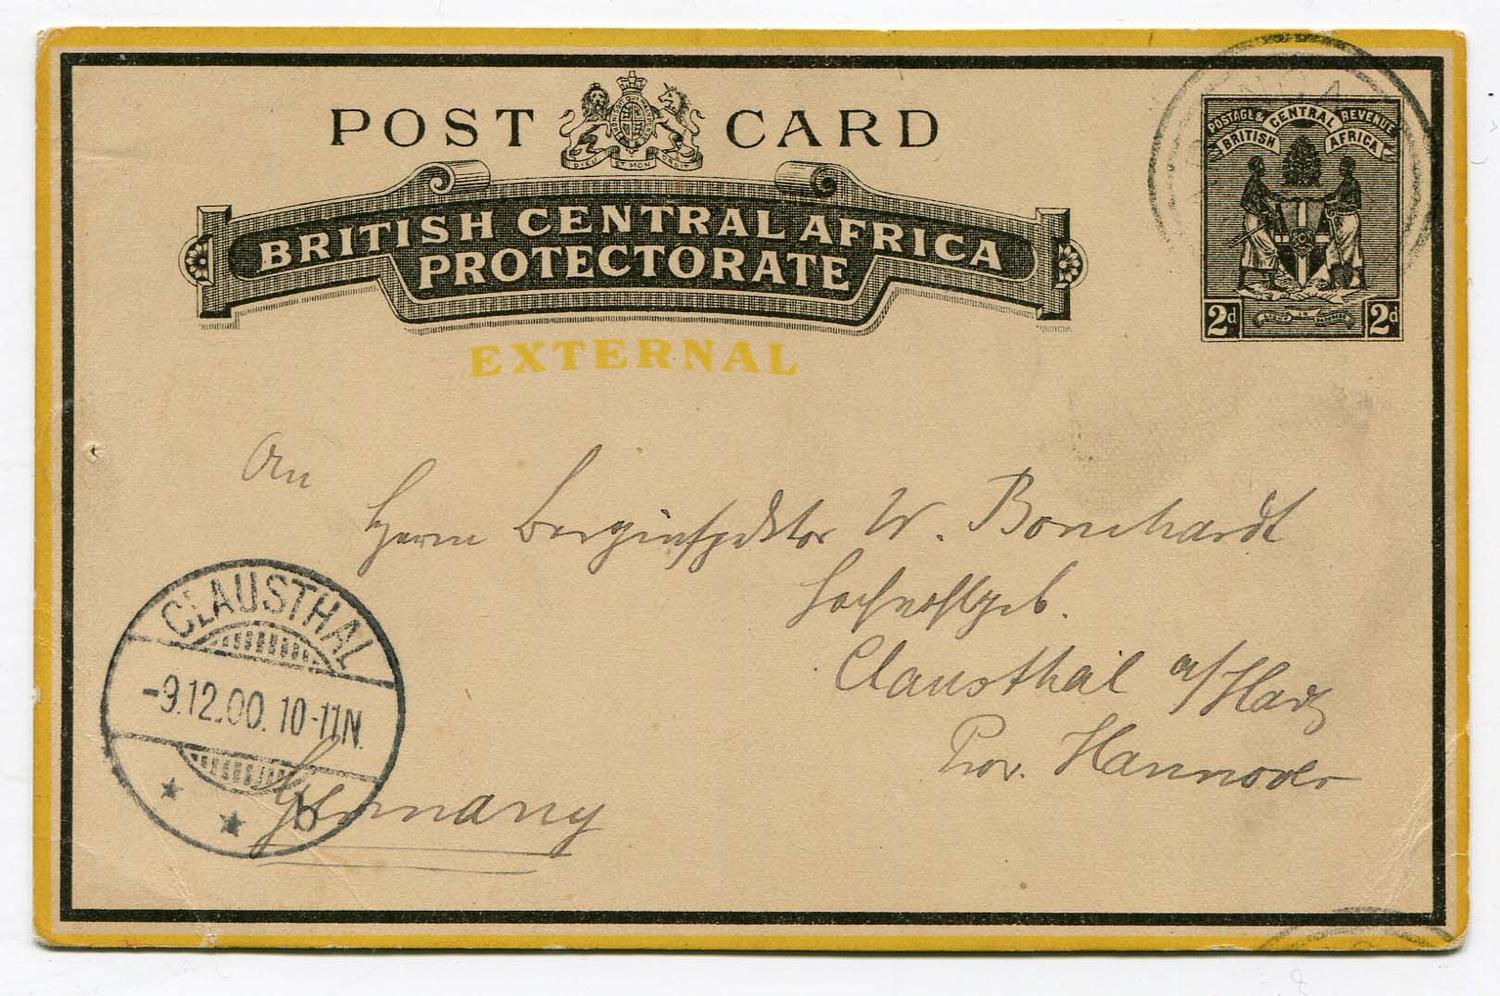 POST CARD
DIEU ET MON DROIT
BRITISH CENTRAL AFRICA
PROTECTORATE
EXTERNAL
POSTAGE & REVENUE
BRITISH CENTRAL AFRICA
2d 2d
An
Herrn Berginspektor W. Bornhardt
Hochwohlgeb.
Clausthal a/Harz
Prov. Hannover
Germany
CLAUSTHAL
-9.12.00. 10-11N.
* * b